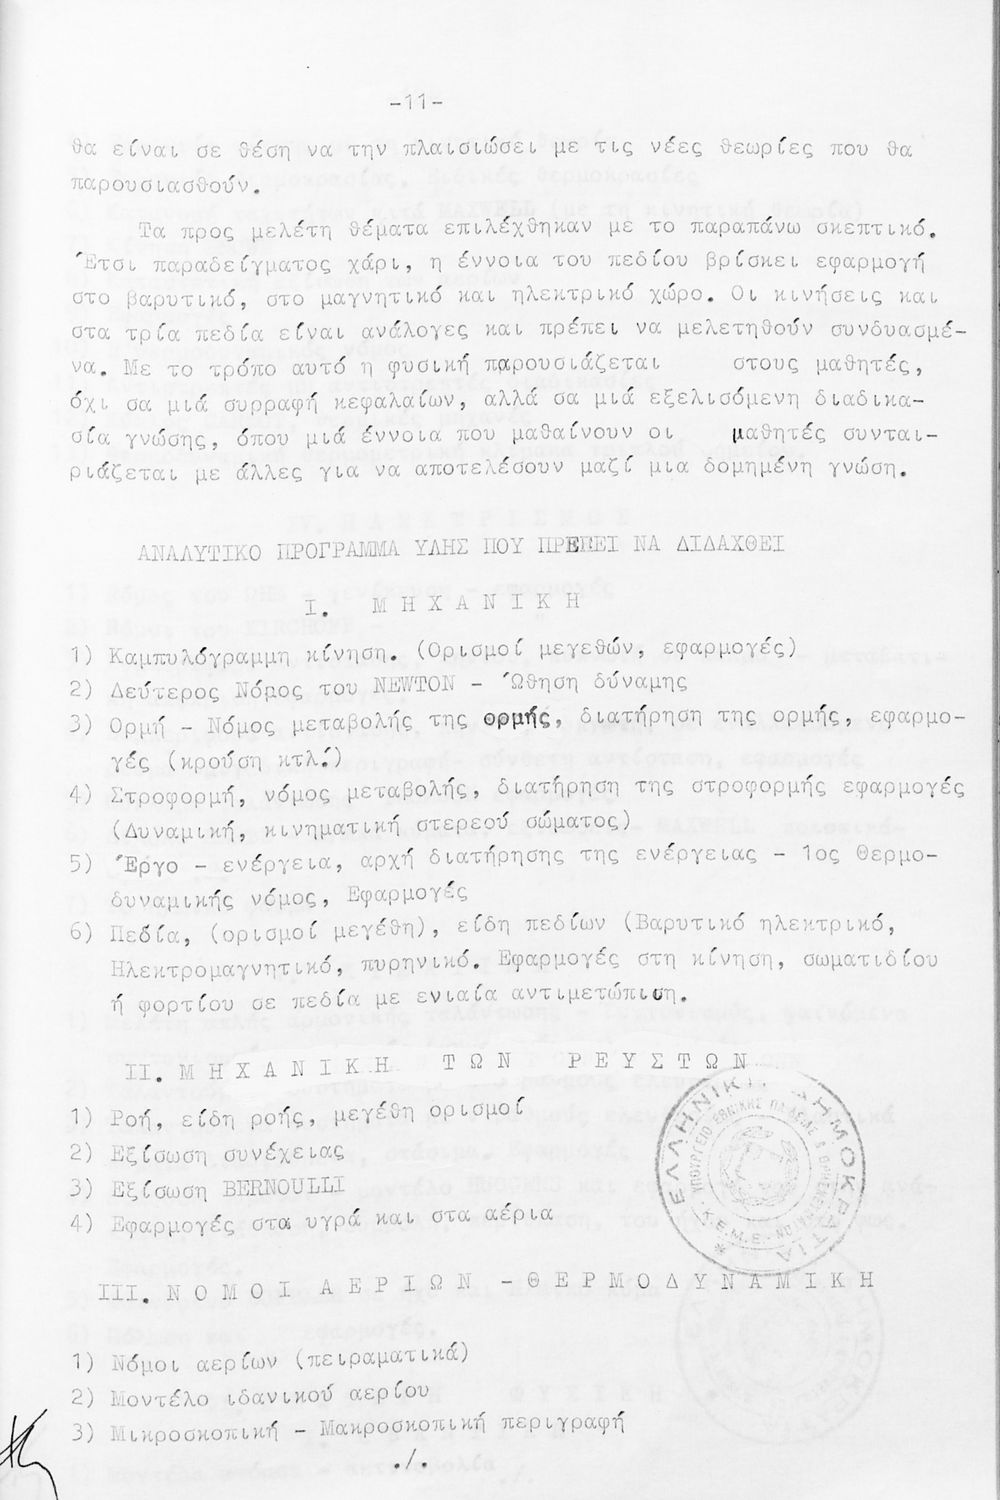 -11-
θα είναι σε θέση να την πλαισιώσει με τις νέες θεωρίες που θα
παρουσιασθούν.
Τα προς μελέτη θέματα επιλέχθηκαν με το παραπάνω σκεπτικό.
Έτσι παραδείγματος χάρι, η έννοια του πεδίου βρίσκει εφαρμογή
στο βαρυτικό, στο μαγνητικό και ηλεκτρικό χώρο. Οι κινήσεις και
στα τρία πεδία είναι ανάλογες και πρέπει να μελετηθούν συνδυασμέ-
να. Με το τρόπο αυτό η φυσική παρουσιάζεται στους μαθητές,
όχι σα μιά συρραφή κεφαλαίων, αλλά σα μιά εξελισόμενη διαδικα-
σία γνώσης, όπου μιά έννοια που μαθαίνουν οι μαθητές συνται-
ριάζεται με άλλες για να αποτελέσουν μαζί μια δομημένη γνώση.
ΑΝΑΛΥΤΙΚΟ ΠΡΟΓΡΑΜΜΑ ΥΛΗΣ ΠΟΥ ΠΡΕΠΕΙ ΝΑ ΔΙΔΑΧΘΕΙ
I. ΜΗΧΑΝΙΚΗ
1) Καμπυλόγραμμη κίνηση. (Ορισμοί μεγεθών, εφαρμογές)
2) Δεύτερος Νόμος του NEWTON - Ώθηση δύναμης
3) Ορμή - Νόμος μεταβολής της ορμής, διατήρηση της ορμής, εφαρμο-
γές (κρούση κτλ.)
4) Στροφορμή, νόμος μεταβολής, διατήρηση της στροφορμής εφαρμογές
(Δυναμική, κινηματική στερεού σώματος)
5) Έργο - ενέργεια, αρχή διατήρησης της ενέργειας - 1ος Θερμο-
δυναμικής νόμος, Εφαρμογές
6) Πεδία, (ορισμοί μεγέθη), είδη πεδίων (Βαρυτικό ηλεκτρικό,
Ηλεκτρομαγνητικό, πυρηνικό. Εφαρμογές στη κίνηση, σωματιδίου
ή φορτίου σε πεδία με ενιαία αντιμετώπιση.
II. ΜΗΧΑΝΙΚΗ ΤΩΝ ΡΕΥΣΤΩΝ
1) Ροή, είδη ροής, μεγέθη ορισμοί
2) Εξίσωση συνέχειας
3) Εξίσωση BERNOULLI
4) Εφαρμογές στα υγρά και στα αέρια
ΕΛΛΗΝΙΚΗ ΔΗΜΟΚΡΑΤΙΑ
ΥΠΟΥΡΓΕΙΟ ΕΘΝΙΚΗΣ ΠΑΙΔΕΙΑΣ & ΘΡΗΣΚΕΥΜΑΤΩΝ
Κ.Ε.Μ.Ε.
III. ΝΟΜΟΙ ΑΕΡΙΩΝ - ΘΕΡΜΟΔΥΝΑΜΙΚΗ
1) Νόμοι αερίων (πειραματικά)
2) Μοντέλο ιδανικού αερίου
3) Μικροσκοπική - Μακροσκοπική περιγραφή
./.